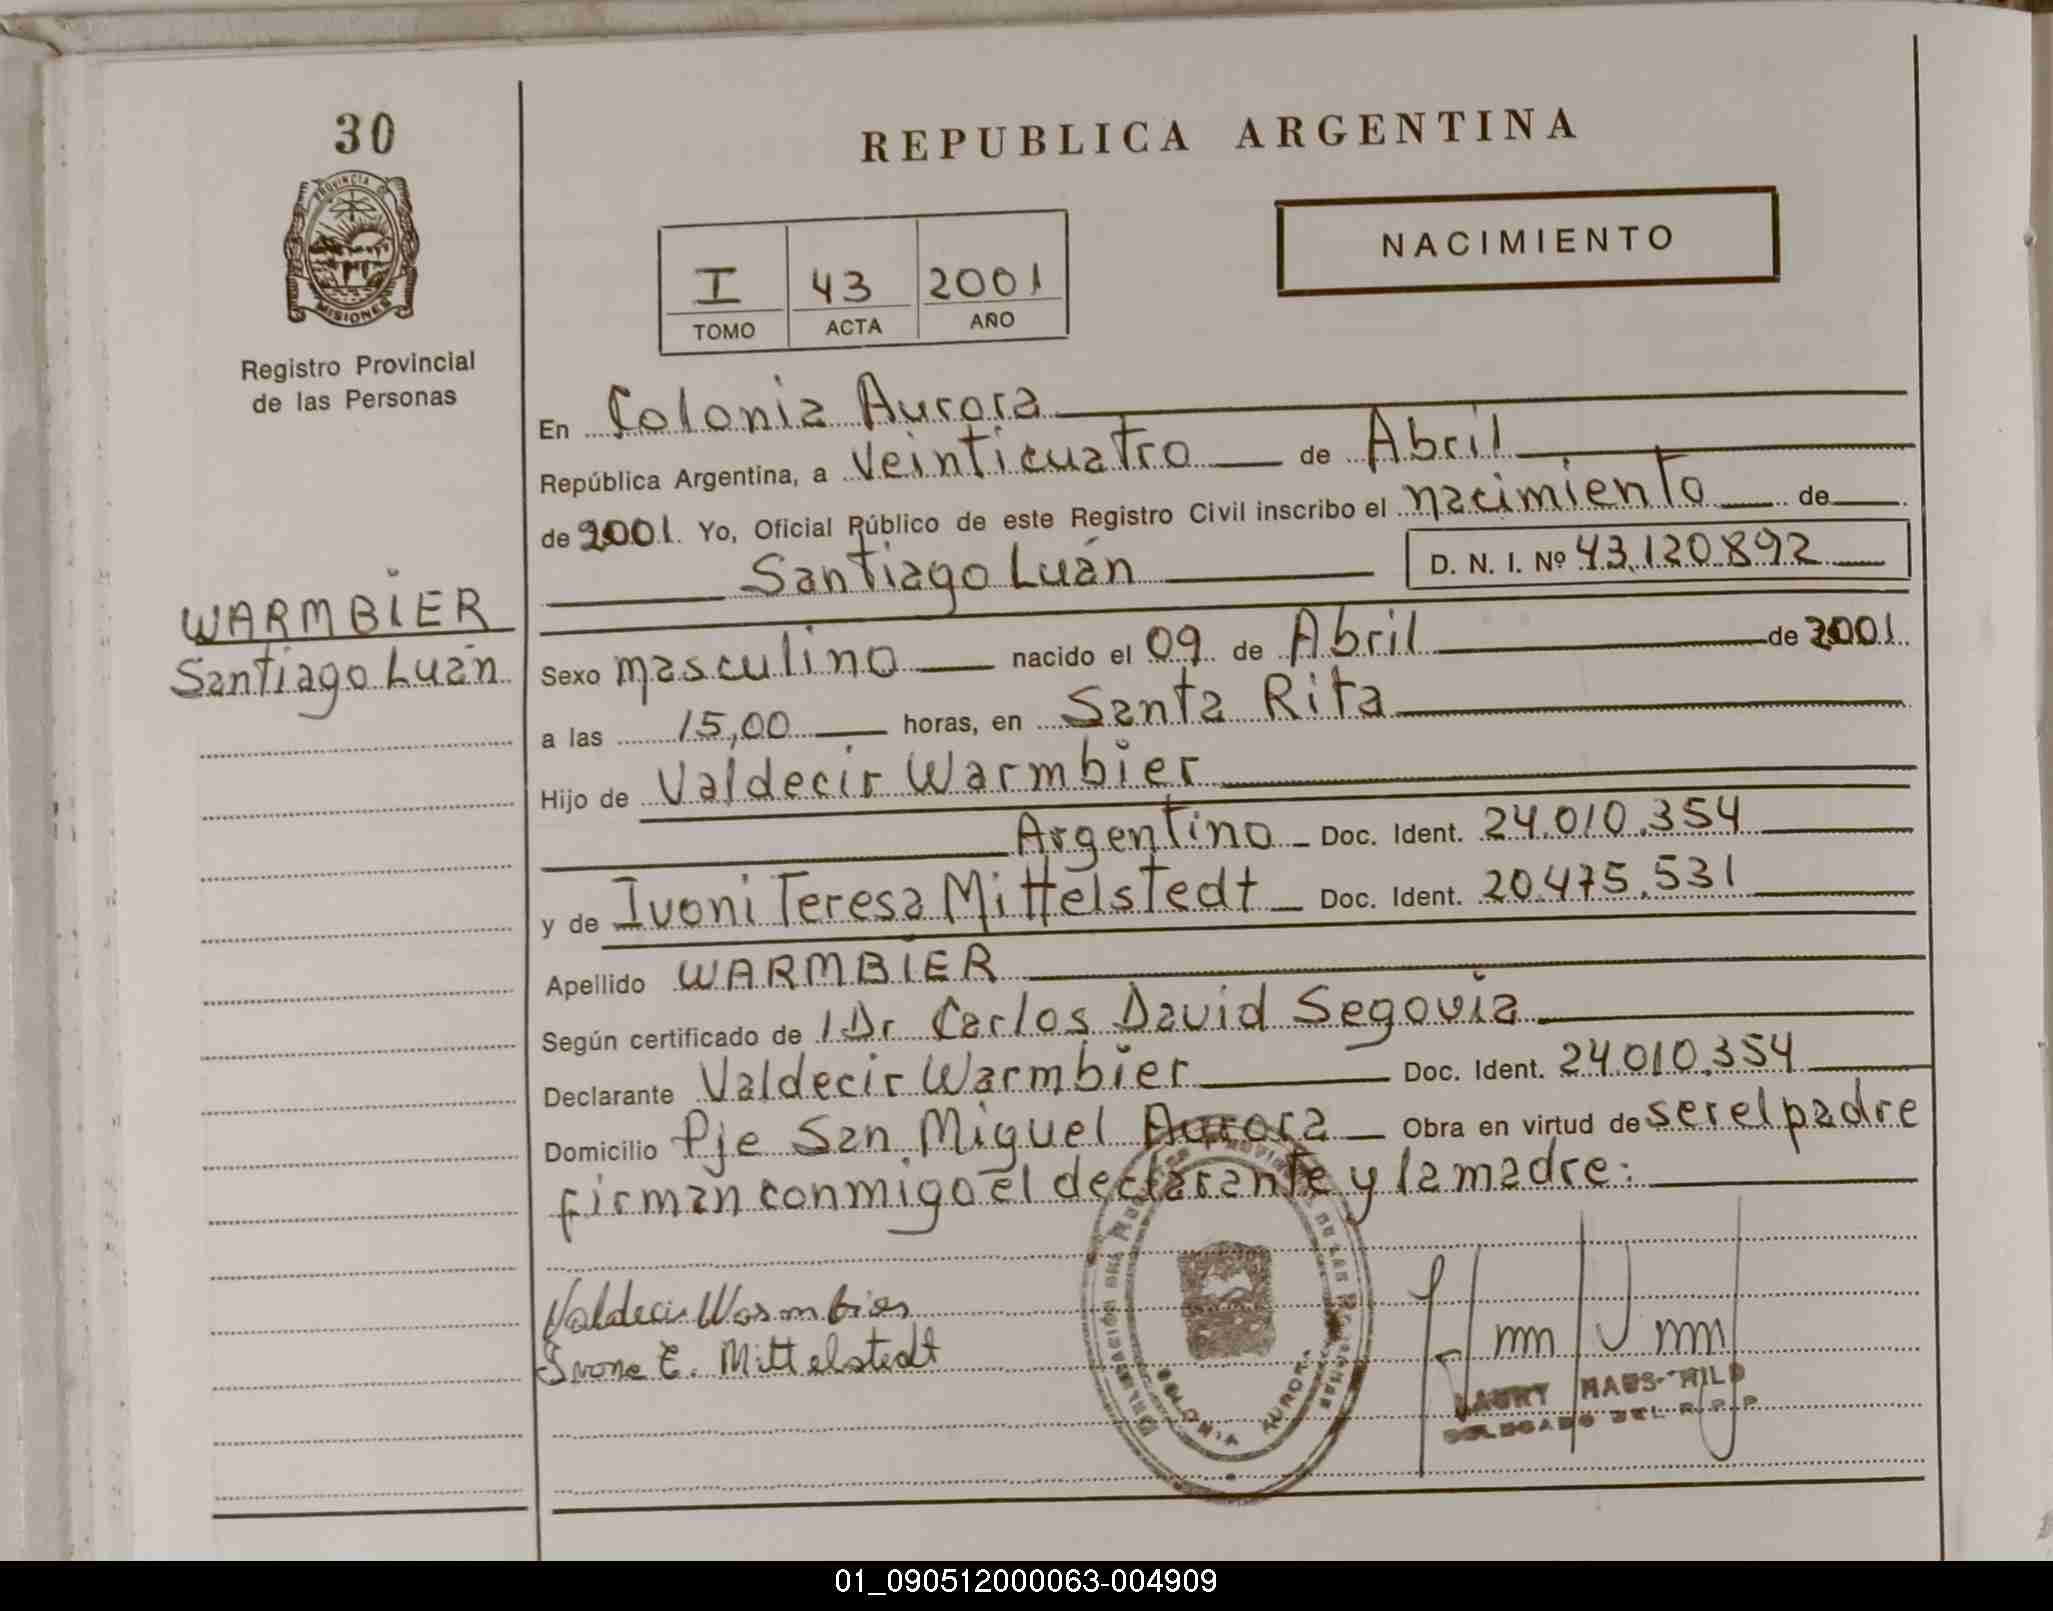 30
PROVINCIA D
MISIONES
Registro Provincial
de las Personas
WARMBIER
Santiago Luán
REPUBLICA ARGENTINA
NACIMIENTO
I 43 2001
TOMO ACTA AÑO
En Colonia Aurora
República Argentina, a Veinticuatro de Abril
de 2001. Yo, Oficial Público de este Registro Civil inscribo el nacimiento de
Santiago Luán D. N. I. Nº 43.120.892
Sexo masculino nacido el 09 de Abril de 2001
a las 15,00 horas, en Santa Rita
Hijo de Valdecir Warmbier
Argentino Doc. Ident. 24.010.354
y de Ivoni Teresa Mittelstedt Doc. Ident. 20.475.531
Apellido WARMBIER
Según certificado de l Dr Carlos David Segovia
Declarante Valdecir Warmbier Doc. Ident. 24.010.354
Domicilio Pje San Miguel Aurora Obra en virtud de ser el padre
firman conmigo el declarante y la madre:
Valdecir Warmbier
Ivone E. Mittelstedt
COLONIA AURORA
DELEGADO DEL R.P.P
01_090512000063-004909